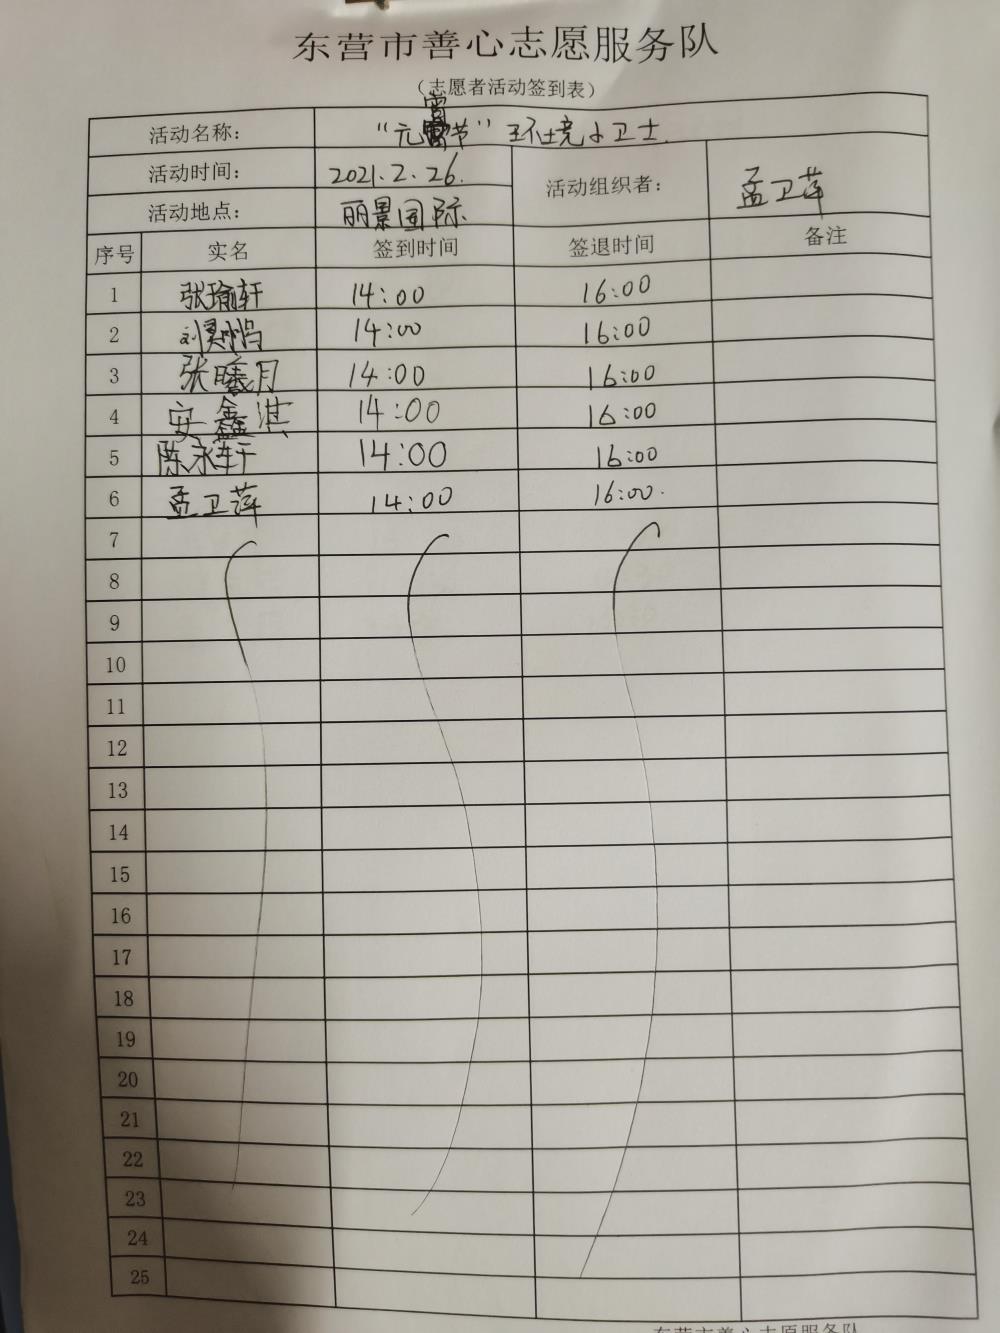 东营市善心志愿服务队
（志愿者活动签到表）
活动名称： “元宵节”环境小卫士.
活动时间： 2021.2.26. 活动组织者： 孟卫萍
活动地点： 丽景国际
序号 实名 签到时间 签退时间 备注
1 张瑜轩 14:00 16:00
2 刘 14:00 16:00
3 张曦月 14:00 16:00
4 安鑫淇 14:00 16:00
5 陈永轩 14:00 16:00
6 孟卫萍 14:00 16:00.
7
8
9
10
11
12
13
14
15
16
17
18
19
20
21
22
23
24
25
东营市善心志愿服务队